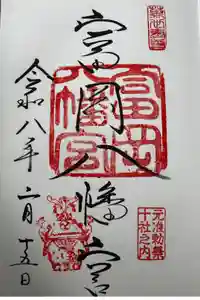 富岡八幡宮
令和八年二月十五日
富岡八幡宮
元准勅祭
十社之内